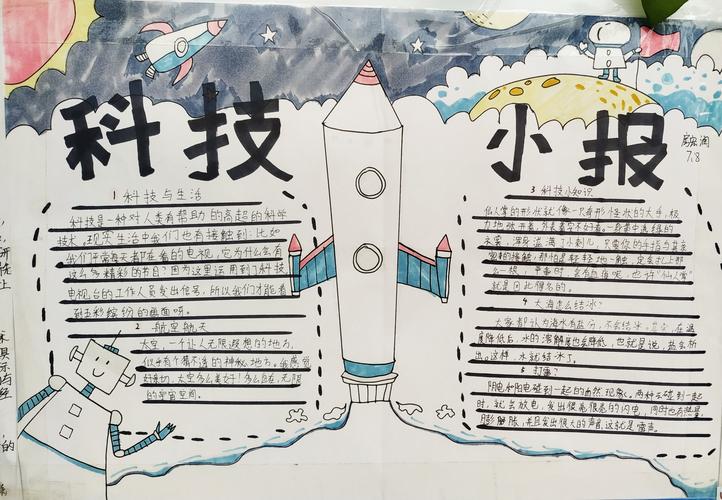 科技小报
7.8
1 科技与生活
科技是一种对人类有帮助的高超的科学
技术,现实生活中我们也有接触到.比如
我们平常每天都在看的电视,它为什么会有
这么多精彩的节目?因为这里运用到了科技
电视台的工作人员发出信号,所以我们才能看
到五彩缤纷的画面呀。
2 航空航天
太空,一个让人无限遐想的地方,
似乎有个猜不透的神秘地方。
太空多么美好!多么自在,无限
的宇宙空间。
3 科技小知识
仙人掌的形状就像一只奇形怪状的大手,极
力地张开着,外表看起来好看。一身装中真绿的
衣裳,浑身还满了小刺儿,只要你的手指与其亲
密的接触,那怕是轻轻地一触,定会扎上那
么一根
就是因此得名的。
4 大海怎么结冰?
大家都认为海水有盐分,不会结冰.在温
度降低后,水的溶解度也会降低,也就是说,盐会析
出。这样,水就结冰了。
5 打雷?
阴电和阳电碰到一起的自然现象。两种云碰到一起
时,就会放电,发出很亮很亮的闪电,同时也有热量
膨胀,并且发出很大的声音,这就是雷声。